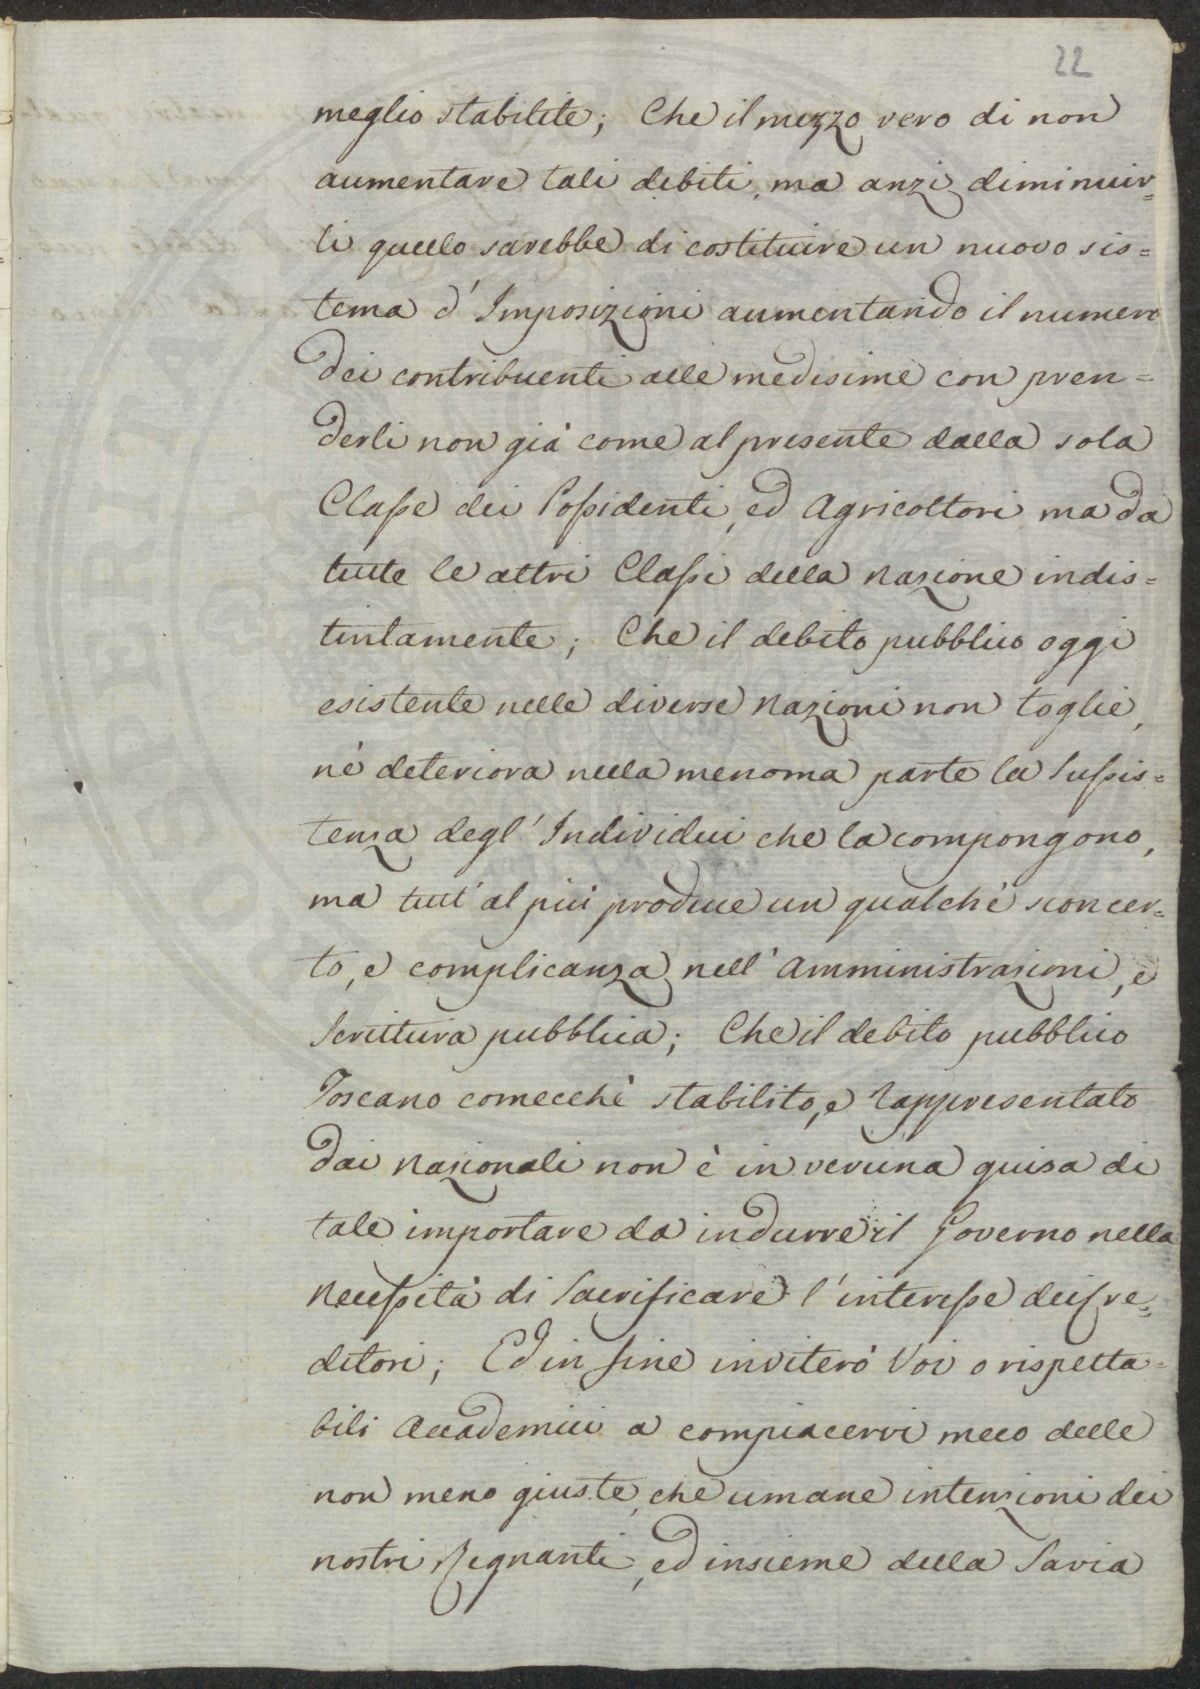 22
meglio stabilite; Che il mezzo vero di non
aumentare tali debiti, ma anzi diminuir=
li quello sarebbe di costituire un nuovo sis=
tema d'Imposizioni aumentando il numero
dei contribuenti alle medesime con pren=
derli non già come al presente dalla sola
Classe dei Possidenti, ed Agricoltori ma da
tutte le altri Classi della Nazione indis=
tintamente; Che il debito pubblico oggi
esistente nelle diverse Nazioni non toglie,
nè deteriora nella menoma parte la Sussis=
tenza degl'Individui che la compongono,
ma tutt'al più produce un qualchè sconcer=
to, e complicanza nell'Amministrazioni, e
Scrittura pubblica; Che il debito pubblico
Toscano comecchè stabilito, e rappresentato
dai Nazionali non è in veruna guisa di
tale importare da indurre il Governo nella
Necessità di Sacrificare l'interesse dei Cre=
ditori; Ed in fine inviterò Voi o rispetta=
bili Accademici a compiacervi meco delle
non meno giuste, che umane intenzioni dei
nostri Regnanti, ed insieme della Savia